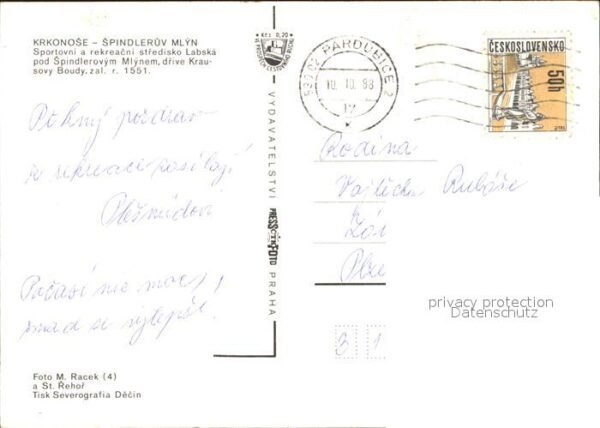 KRKONOŠE – ŠPINDLERŮV MLÝN
Sportovní a rekreační středisko Labská
pod Špindlerovým Mlýnem, dříve Krau-
sovy Boudy, zal. r. 1551.
Kčs 0,20
VE PROSPĚCH CESTOVNÍHO RUCHU
532 02 PARDUBICE 2
10.10.88
12
ČESKOSLOVENSKO
50h
Pěkný pozdrav
z rekreace posílají
Počasí nic moc,
snad se vylepší.
VYDAVATELSTVÍ PRESSFOTO PRAHA
Rodina
Vojtěcha
privacy protection
Datenschutz
3 1
Foto M. Racek (4)
a St. Řehoř
Tisk Severografia Děčín